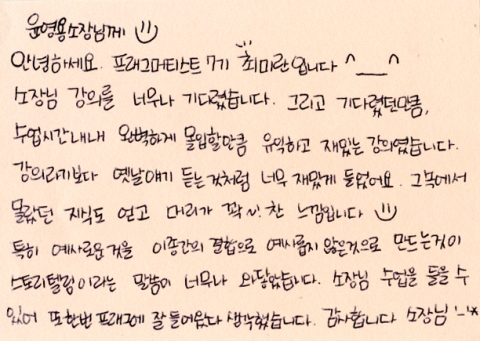 윤영용소장님께
안녕하세요. 프래그머티스트 7기 최미란입니다 ^__^
소장님 강의를 너무나 기다렸습니다. 그리고 기다렸던만큼,
수업시간내내 완벽하게 몰입할만큼 유익하고 재밌는 강의였습니다.
강의라기보다 옛날얘기 듣는것처럼 너무 재밌게 들었어요. 그속에서
몰랐던 지식도 얻고 머리가 꽉~! 찬 느낌입니다
특히 예사로운것을 이종간의 결합으로 예사롭지 않은것으로 만드는것이
스토리텔링이라는 말씀이 너무나 와닿았습니다. 소장님 수업을 들을 수
있어 또한번 프래그에 잘 들어왔다 생각했습니다. 감사합니다 소장님 '-'*